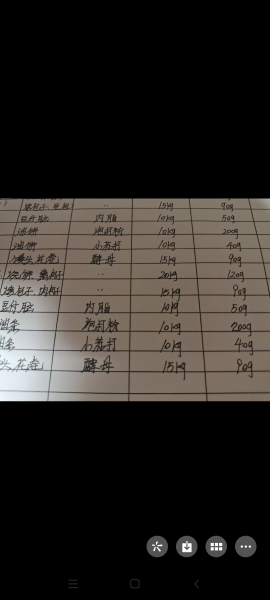 包子 豆包 〃 15kg 90g
豆付脑 内脂 10kg 50g
油饼 泡打粉 10kg 200g
油饼 小苏打 10kg 40g
馒头 花卷 酵母 15kg 90g
〃 20kg 120g
包子 肉 〃 15kg 90g
豆付脑 内脂 10kg 50g
油条 泡打粉 10kg 200g
油条 小苏打 10kg 40g
头 花卷 酵母 15kg 90g